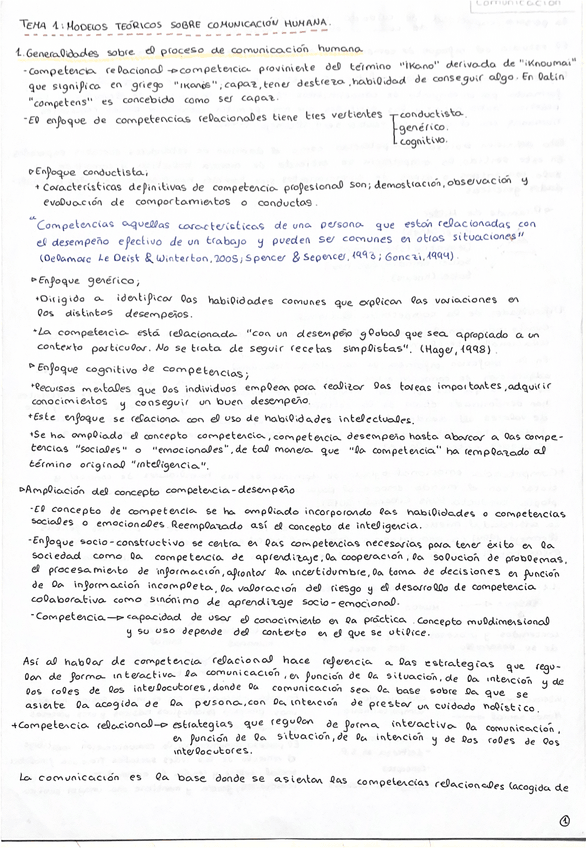 Comunicación
TEMA 1: MODELOS TEÓRICOS SOBRE COMUNICACIÓN HUMANA.
1. Generalidades sobre el proceso de comunicación humana
-Competencia relacional → competencia proviniente del término "Ikano" derivada de "iknoumai"
que significa en griego "ikanós"; capaz, tener destreza, habilidad de conseguir algo. En latín
"competens" es concebido como ser capaz.
-El enfoque de competencias relacionales tiene tres vertientes conductista.
genérico.
cognitivo.
▷Enfoque conductista;
+ Características definitivas de competencia profesional son; demostración, observación y
evaluación de comportamientos o conductas.
"Competencias aquellas características de una persona que están relacionadas con
el desempeño efectivo de un trabajo y pueden ser comunes en otras situaciones"
(Delamare Le Deist & Winterton, 2005; Spencer & Sepencer, 1993; Gonczi, 1994).
▷Enfoque genérico;
+Dirigido a identificar las habilidades comunes que explican las variaciones en
los distintos desempeños.
+La competencia está relacionada "con un desempeño global que sea apropiado a un
contexto particular. No se trata de seguir recetas simplistas". (Hager, 1998).
▷Enfoque cognitivo de competencias;
+Recursos mentales que los individuos emplean para realizar las tareas importantes, adquirir
conocimientos y conseguir un buen desempeño.
+Este enfoque se relaciona con el uso de habilidades intelectuales.
+Se ha ampliado el concepto competencia, competencia desempeño hasta abarcar a las compe-
tencias "sociales" o "emocionales", de tal manera que "la competencia" ha remplazado al
término original "inteligencia".
▷Ampliación del concepto competencia-desempeño
-El concepto de competencia se ha ampliado incorporando las habilidades o competencias
sociales o emocionales. Reemplazado así el concepto de inteligencia.
-Enfoque socio-constructivo se centra en las competencias necesarias para tener éxito en la
sociedad como la competencia de aprendizaje, la cooperación, la solución de problemas,
el procesamiento de información, afrontar la incertidumbre, la toma de decisiones en función
de la información incompleta, la valoración del riesgo y el desarrollo de competencia
colaborativa como sinónimo de aprendizaje socio-emocional.
-Competencia → capacidad de usar el conocimiento en la práctica. Concepto muldimensional
y su uso depende del contexto en el que se utilice.
Así al hablar de competencia relacional hace referencia a las estrategias que regu-
lan de forma interactiva la comunicación, en función de la situación, de la intención y de
los roles de los interlocutores, donde la comunicación sea la base sobre la que se
asiente la acogida de la persona, con la intención de prestar un cuidado holístico.
+Competencia relacional → estrategias que regulan de forma interactiva la comunicación,
en función de la situación, de la intención y de los roles de los
interlocutores.
La comunicación es la base donde se asientan las competencias relacionales (acogida de
1